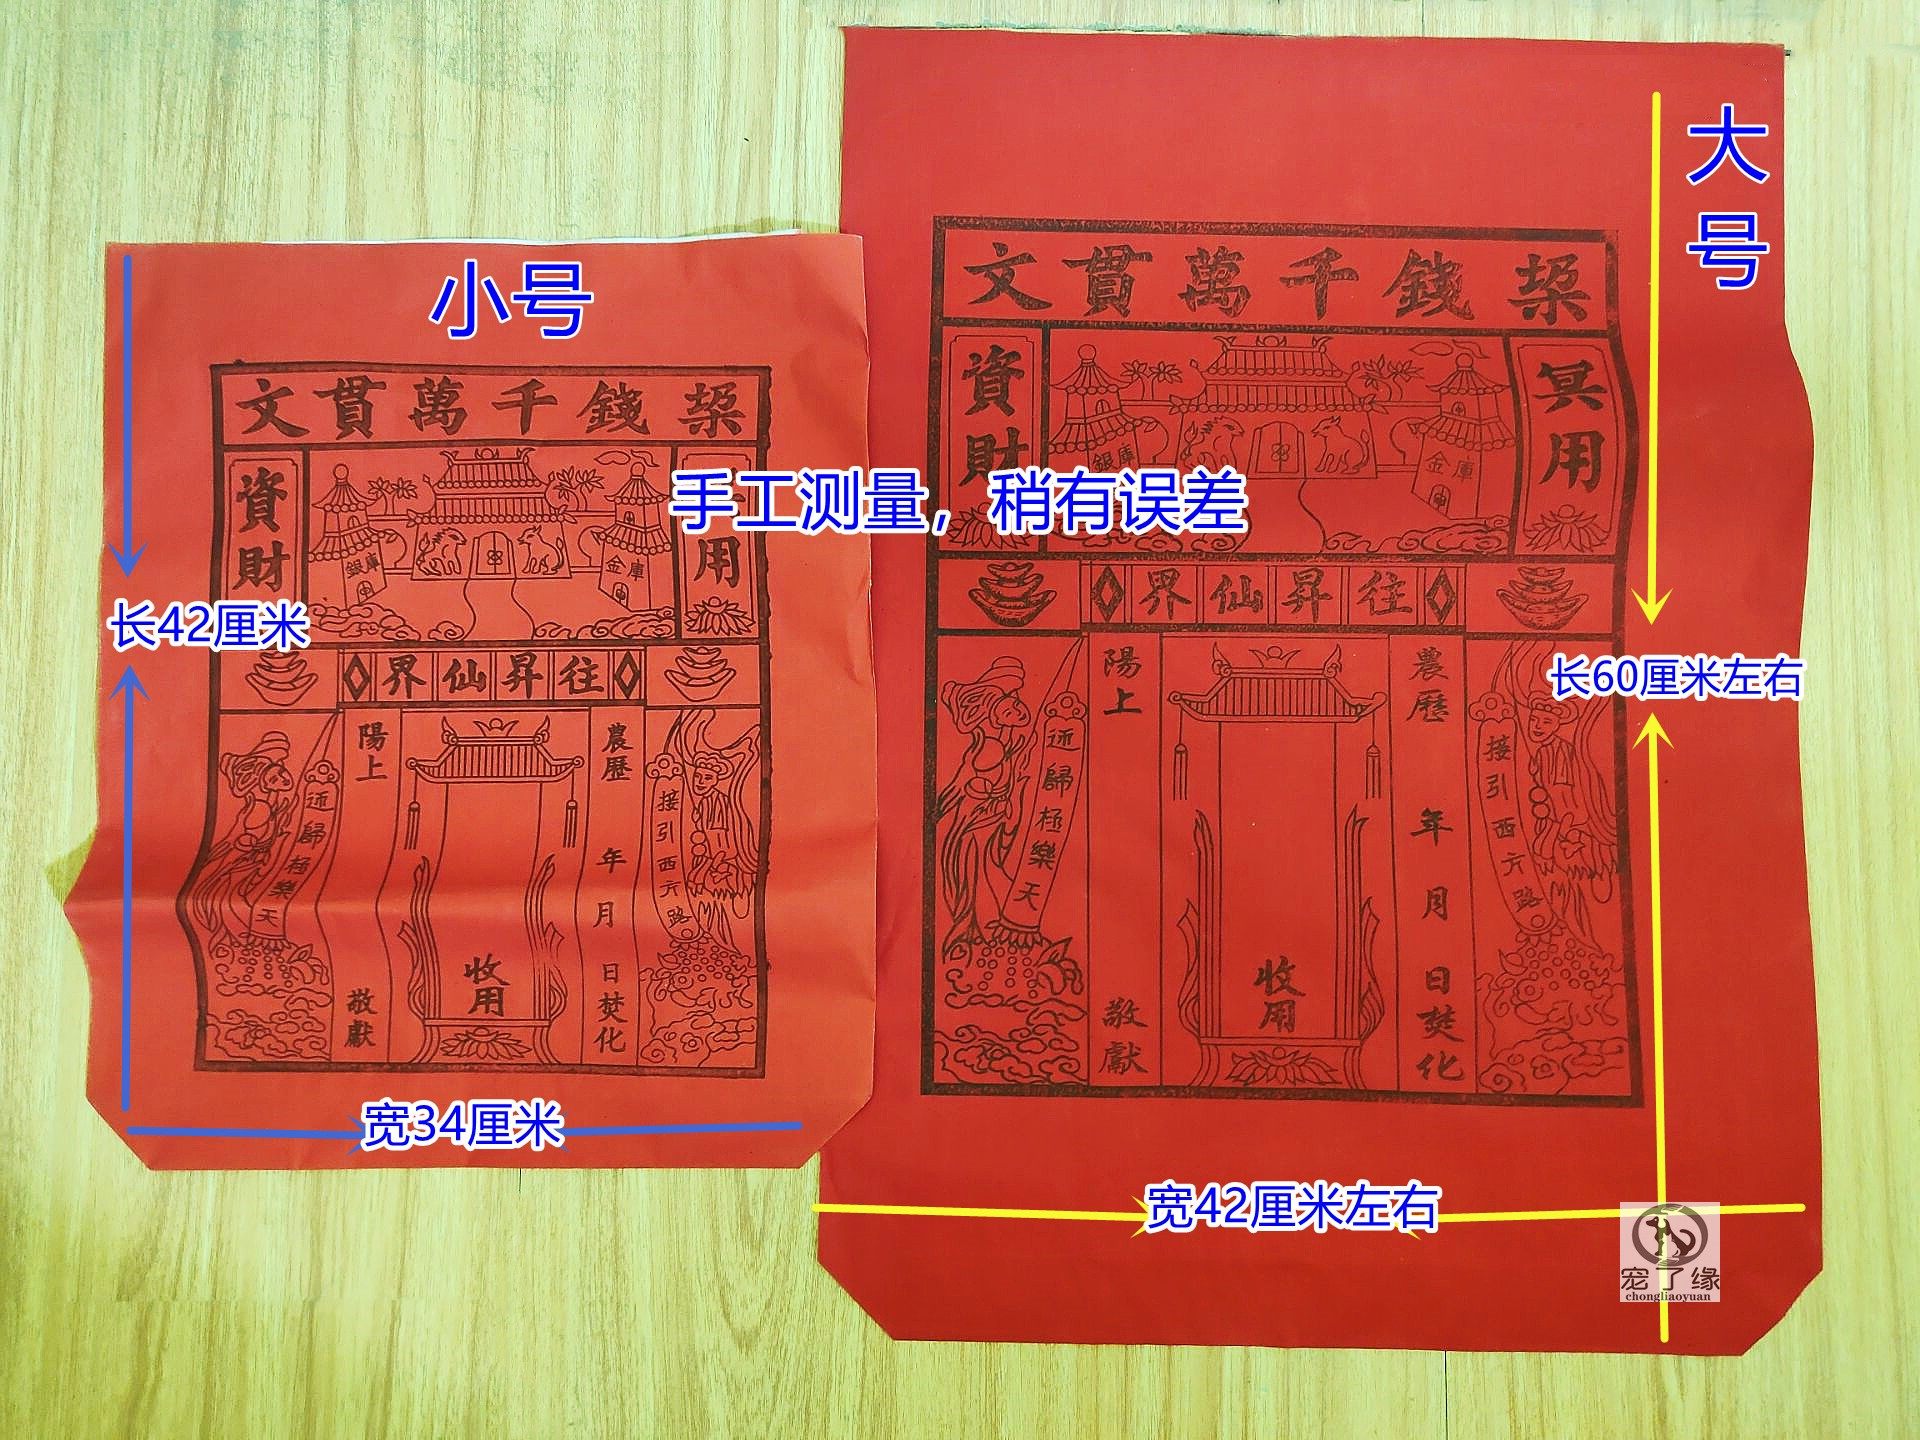 小号
文貫萬千錢
資財
用
銀庫
金庫
界仙昇往
陽上
敬獻
收用
農歷
年
月
日焚化
歸極樂天
接引西方路
长42厘米
宽34厘米
手工测量，稍有误差
大号
文貫萬千錢
資財
冥用
銀庫
金庫
界仙昇往
陽上
敬獻
收用
農歷
年
月
日焚化
歸極樂天
接引西方路
长60厘米左右
宽42厘米左右
宠了缘
chongliaoyuan